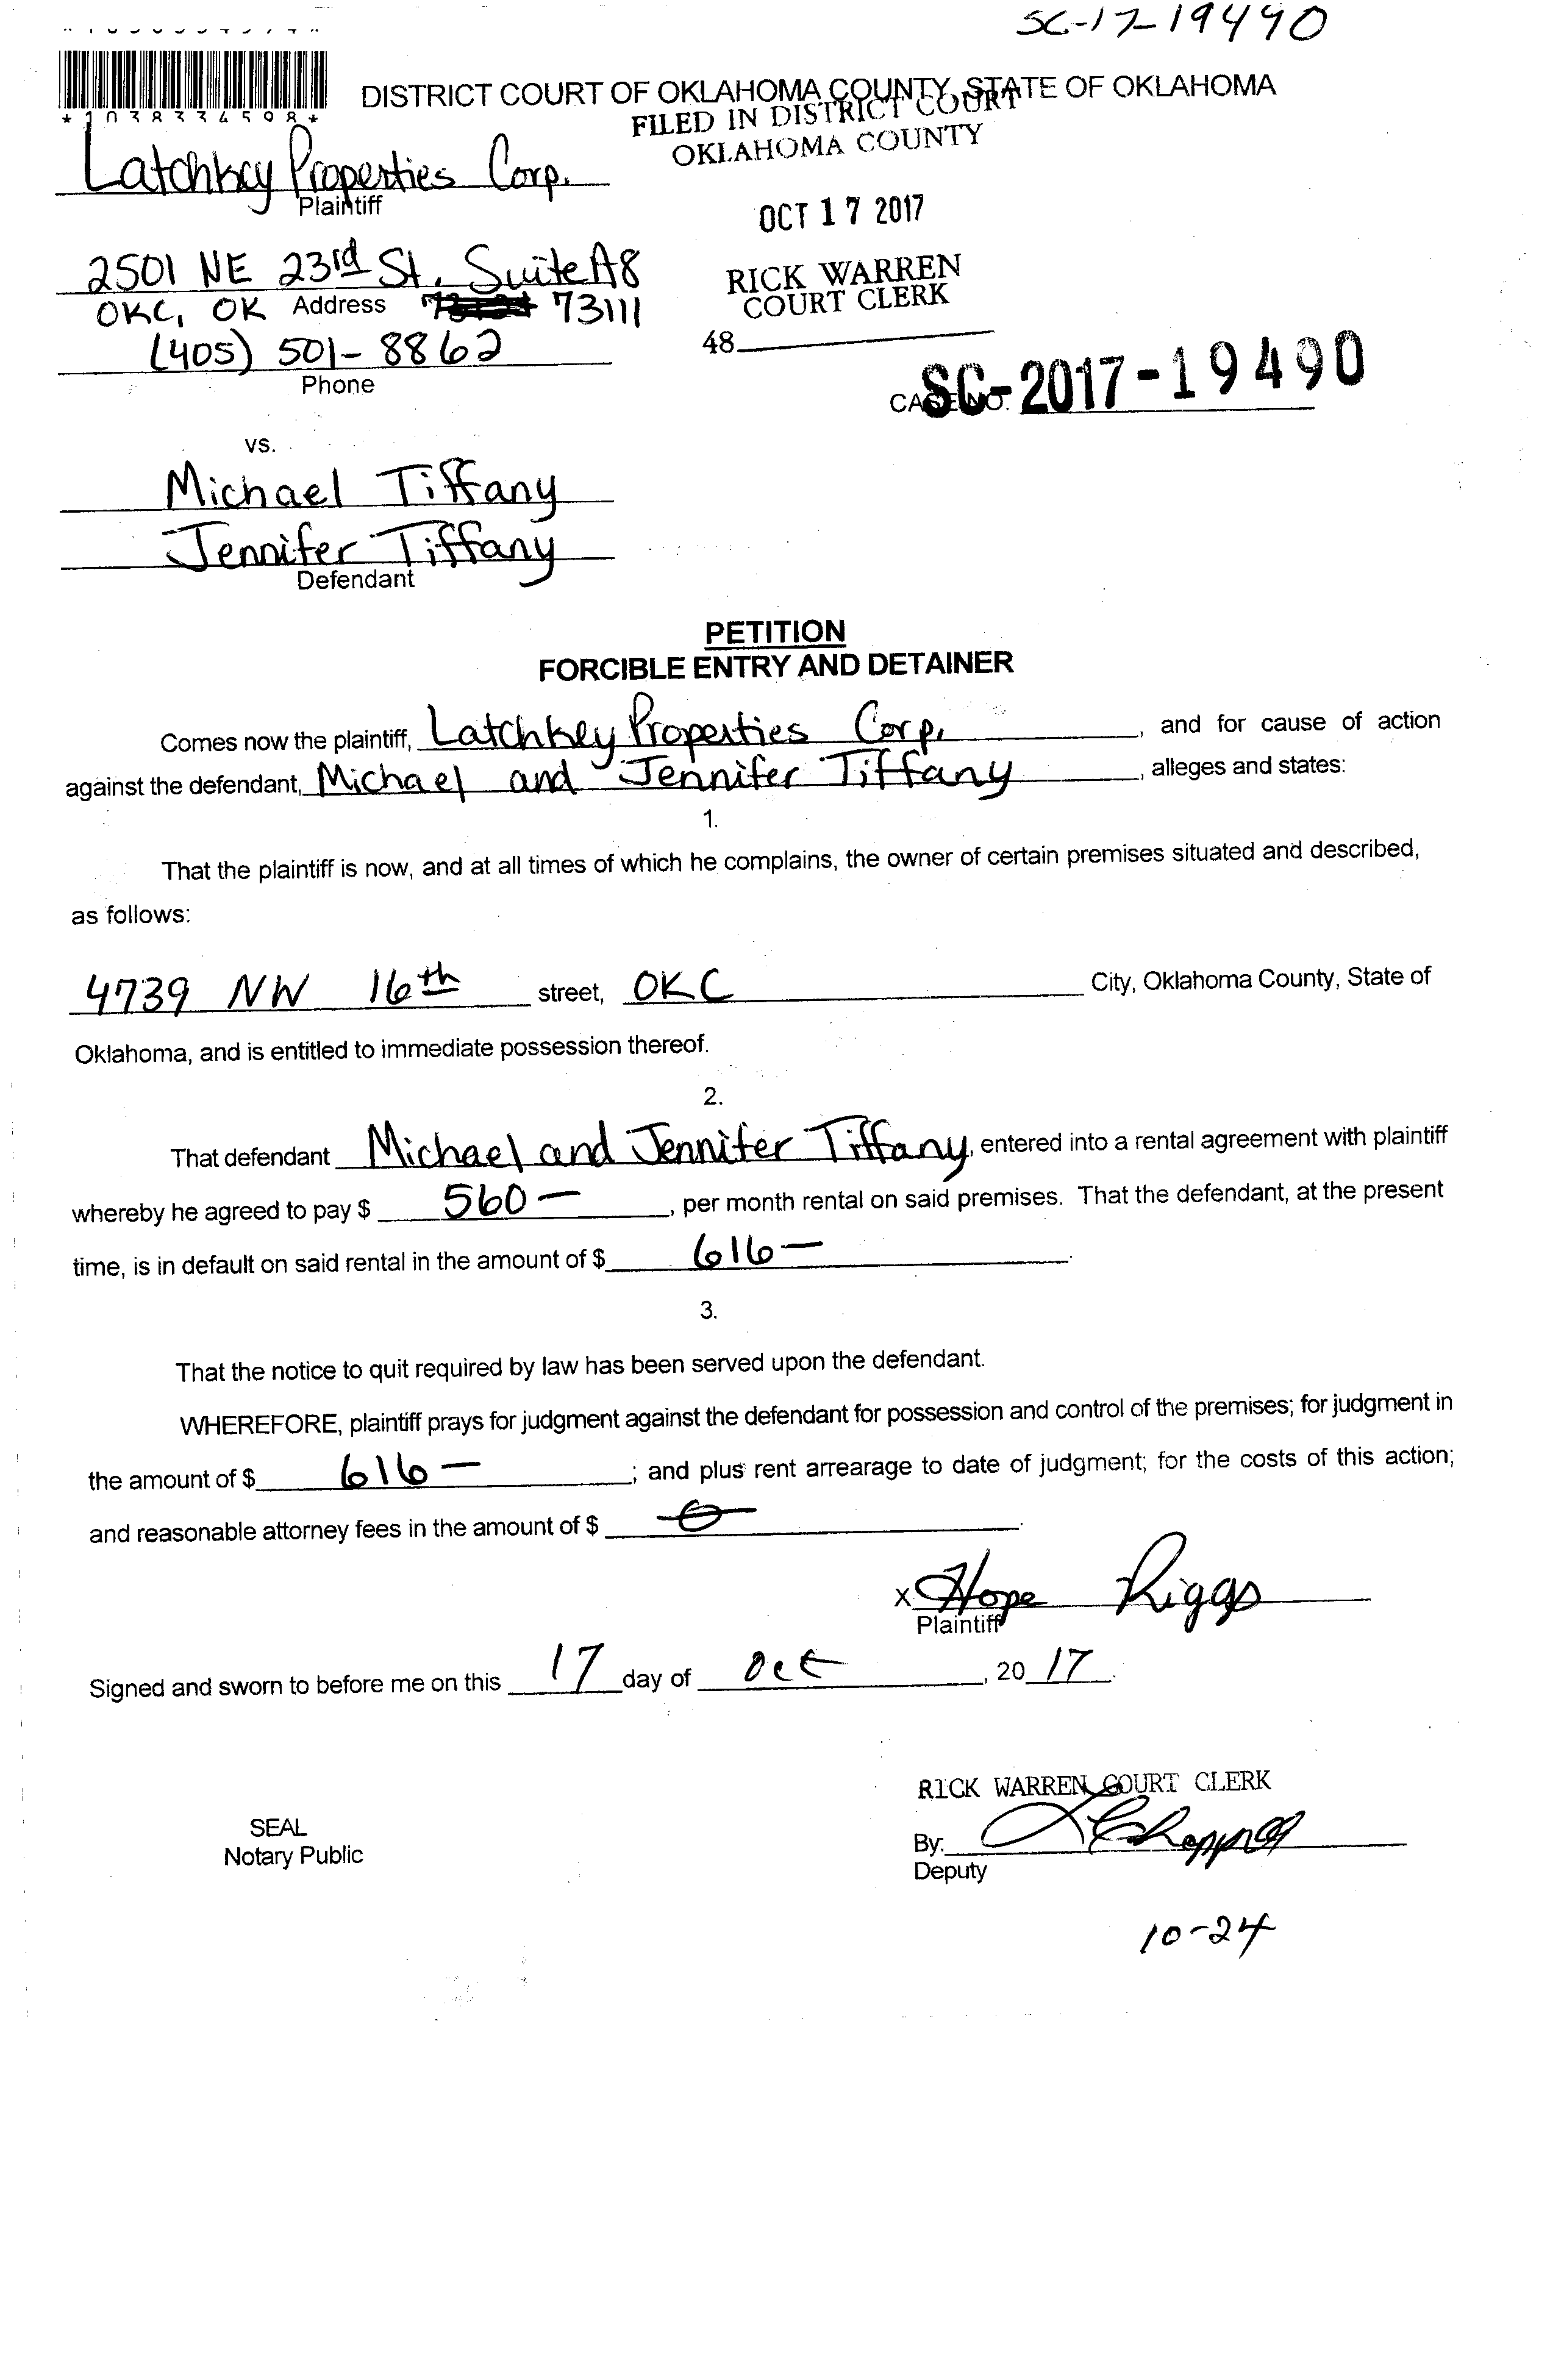 SC-17-19490
DISTRICT COURT OF OKLAHOMA COUNTY, STATE OF OKLAHOMA
FILED IN DISTRICT COURT
OKLAHOMA COUNTY
*1038334598*
Latchkey Properties Corp.
Plaintiff
OCT 17 2017
2501 NE 23rd St. Suite A8
RICK WARREN
COURT CLERK
OKC, OK Address 73111
48
(405) 501-8862
Phone
CASE NO. SC-2017-19490
vs.
Michael Tiffany
Jennifer Tiffany
Defendant
PETITION
FORCIBLE ENTRY AND DETAINER
Comes now the plaintiff, Latchkey Properties Corp. , and for cause of action
against the defendant, Michael and Jennifer Tiffany , alleges and states:
1.
That the plaintiff is now, and at all times of which he complains, the owner of certain premises situated and described,
as follows:
4739 NW 16th street, OKC City, Oklahoma County, State of
Oklahoma, and is entitled to immediate possession thereof.
2.
That defendant Michael and Jennifer Tiffany, entered into a rental agreement with plaintiff
whereby he agreed to pay $ 560— , per month rental on said premises. That the defendant, at the present
time, is in default on said rental in the amount of $ 616— .
3.
That the notice to quit required by law has been served upon the defendant.
WHEREFORE, plaintiff prays for judgment against the defendant for possession and control of the premises; for judgment in
the amount of $ 616— ; and plus rent arrearage to date of judgment; for the costs of this action;
and reasonable attorney fees in the amount of $ 0 .
X Hope Riggs
Plaintiff
Signed and sworn to before me on this 17 day of Oct , 20 17 .
RICK WARREN COURT CLERK
SEAL
Notary Public
By:
Deputy
10-24